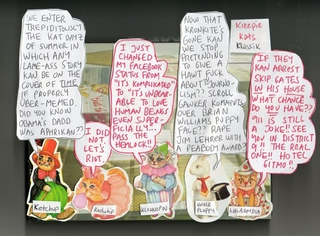 WE ENTER
TREPIDITOUSLY
THE KAT DAYZ
OF SUMMER IN
WHICH ANY
LAME-ASS STORY
KAN BE ON THE
COVER OF TIME
IF PROPERLY
UBER-MEMED.
DID YOU KNOW
OBAMA'S DADD
WAS AFRIKAN??
I DID
NOT.
LET'S
RIOT.
I JUST
CHANGED
MY FACEBOOK
STATUS FROM
"IT'S KOMPLIKATED"
TO "IT'S UNBEAR-
ABLE TO LOVE
HUMAN BEANS
EVEN SUPER-
FICIALLY..."
PASS THE
HEMLOCK!!
NOW THAT
KRONKITE'S
GONE KAN
WE STOP
PRETENDING
TO GIVE A
HAWT FUCK
ABOUT JOURNO-
LISM?? SCROLL
GAWKER ROMANTIC
OVER BRIAN
WILLIAMS POOFY
FACE?? RAPE
JIM LEHRER WITH
A PEABODY AWARD?
Kreepie
Kats
Klassik
IF THEY
KAN ARREST
SKIP GATES
IN HIS HOUSE
WHAT CHANCE
DO YOU HAVE??
911 IS STILL
A JOKE!! SEE
YOU IN DISTRICT
9!! THE REAL
ONE!! HOTEL
GITMO!!
Ketchup
KLOWNOFIN
UNKLE
FLOPPY